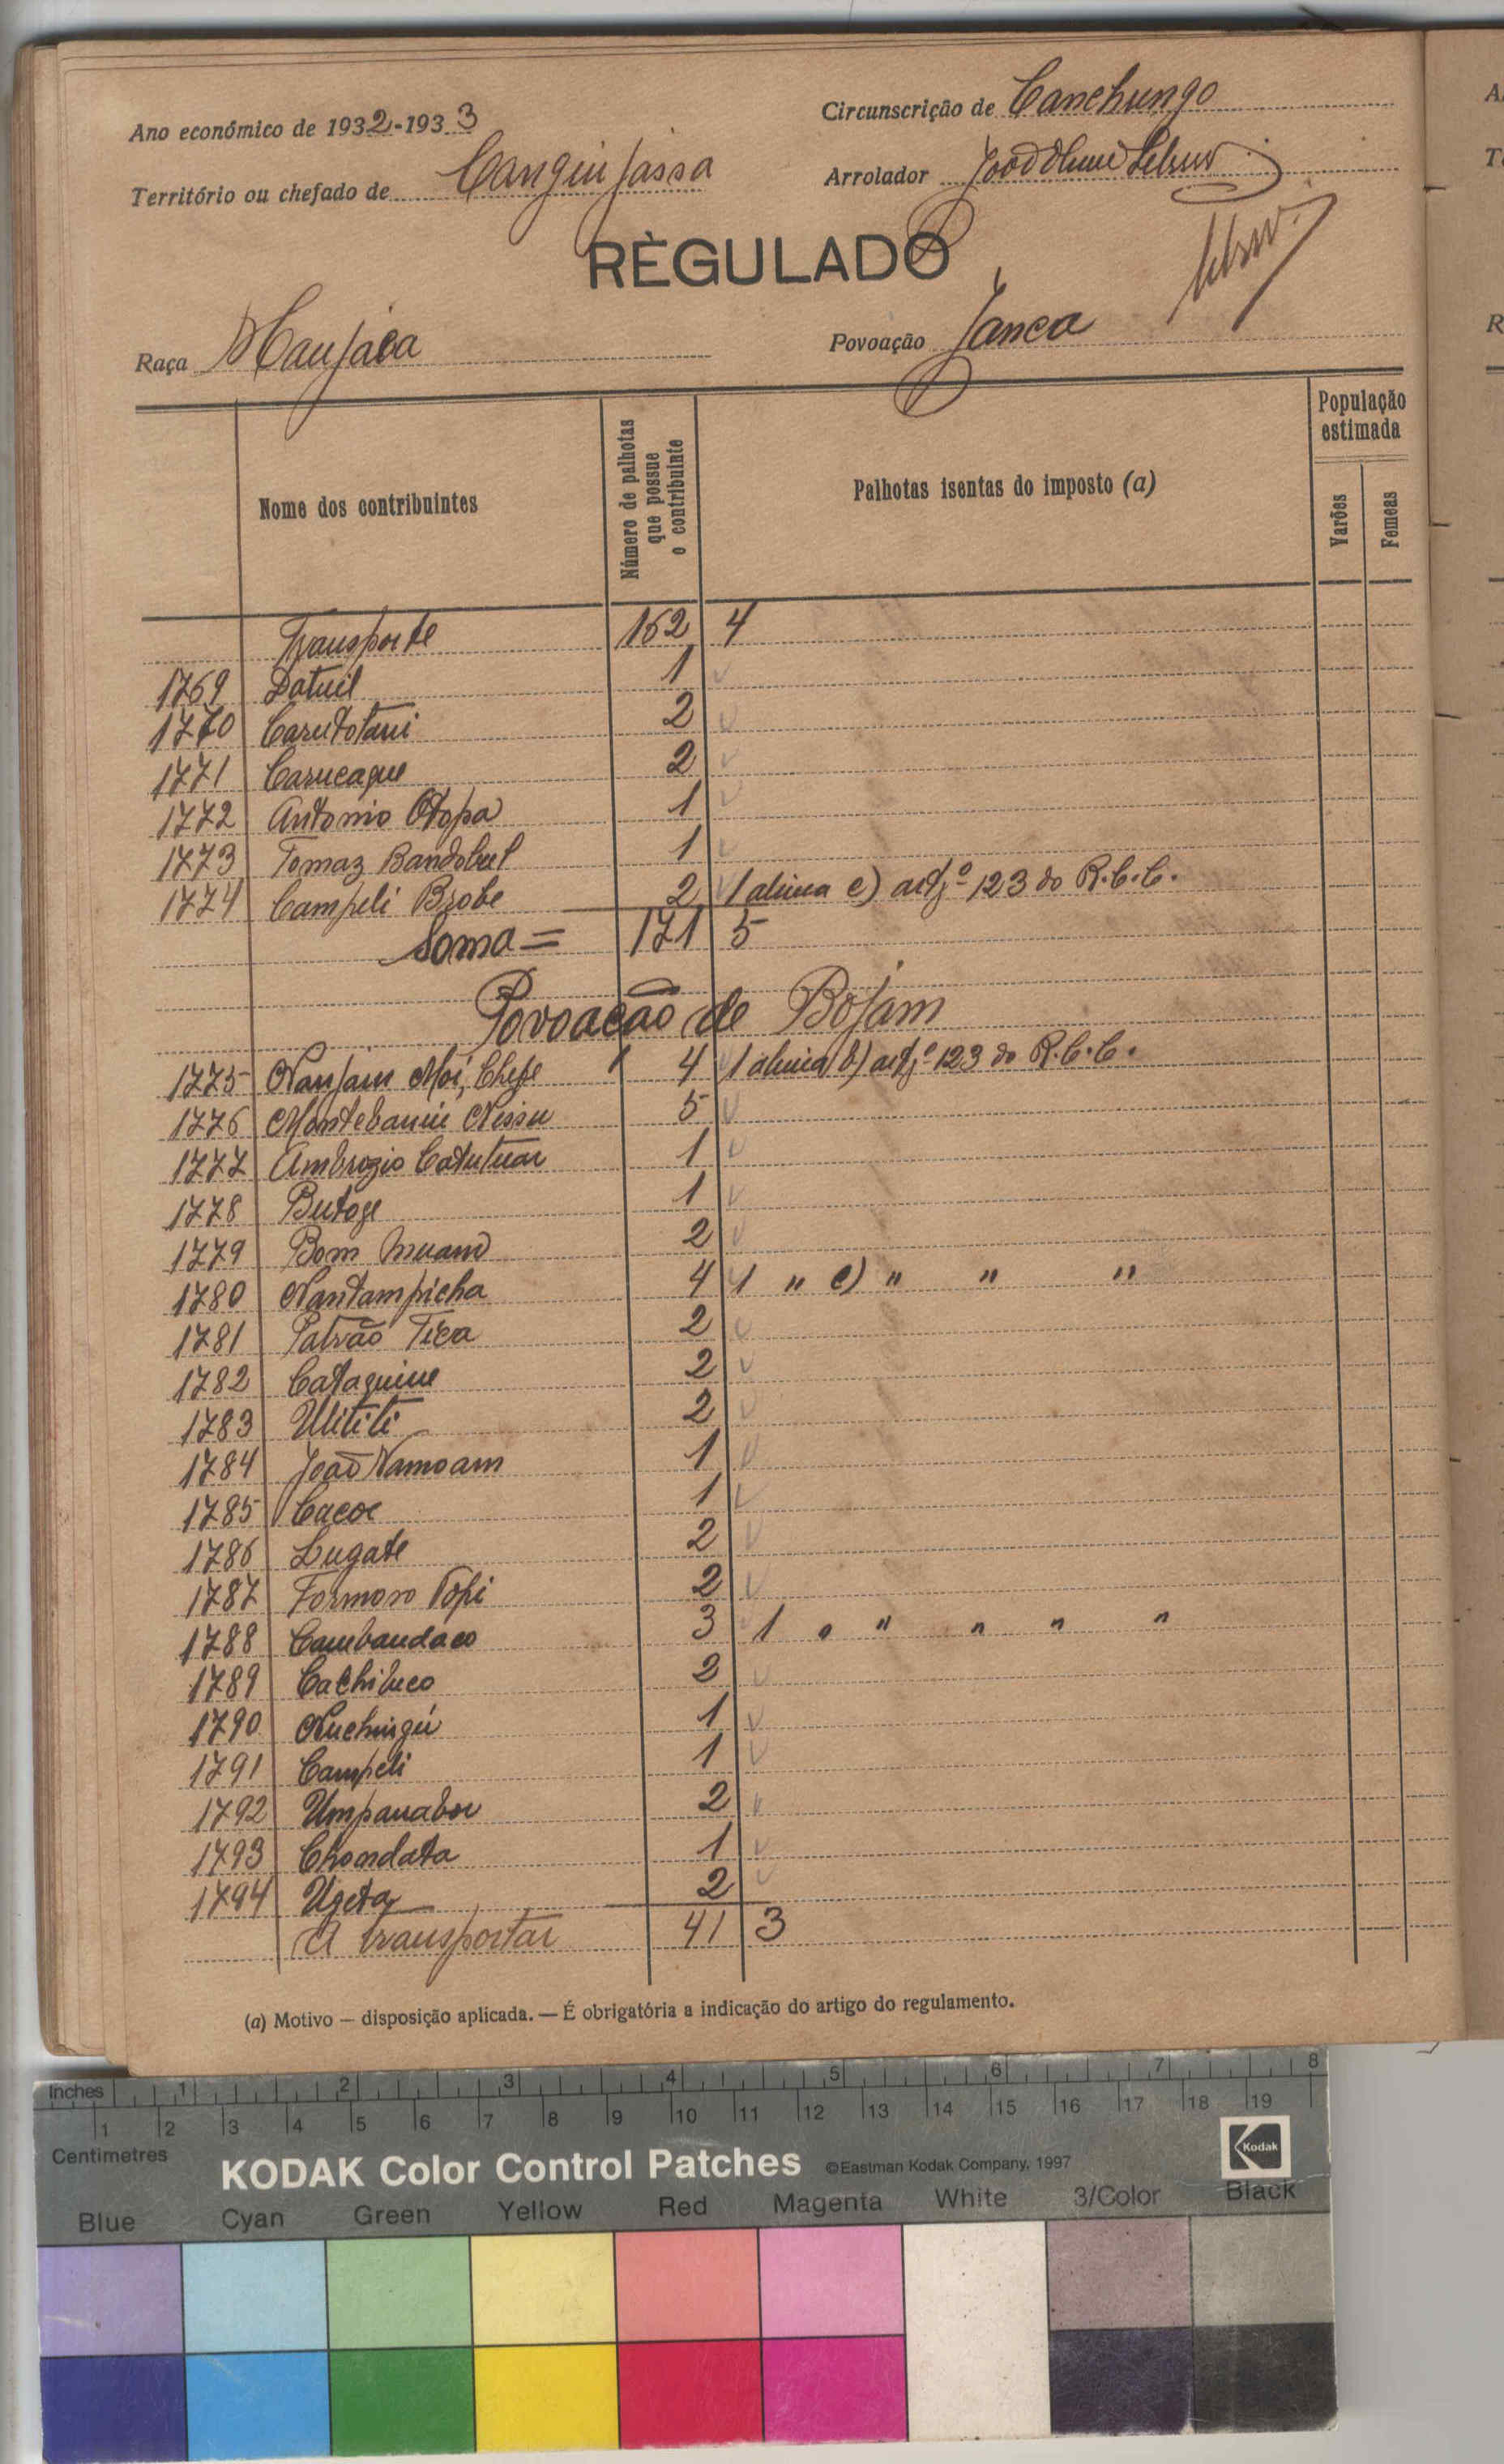 Ano económico de 1932-1933
Circunscrição de Canchungo
Território ou chefado de Canguinjassa
Arrolador
RÈGULADO
Raça Manjáca
Povoação Janca
Nome dos contribuintes
Número de palhotas que possue o contribuinte
Palhotas isentas do imposto (a)
População estimada
Varões
Femeas
Transporte 162 4
1769 Datuil 1
1770 Carutotani 2
1771 Carucaque 2
1772 Antonio Otopa 1
1773 Tomaz Bandobuel 1
1774 Campeli Brobe 2 1 alinea c) artº 123 do R.C.C.
Soma = 171 5
Povoação de Bojam
1775 Nanjam Moi, Chefe 4 1 alinea b) artº 123 do R.C.C.
1776 Montebanin Nissu 5
1777 Ambrozio Catutuar 1
1778 Butoge 1
1779 Bom 2
1780 Nantampicha 4 1 " c) " " "
1781 Patrão Tica 2
1782 Cataquine 2
1783 Ulititi 2
1784 João Namoam 1
1785 Cacoe 1
1786 Lugate 2
1787 Formoso Popi 2
1788 Cambandaco 3 1 " " " " "
1789 Cachibuco 2
1790 Nuchingú 1
1791 Campeli 1
1792 Umpanabor 2
1793 Chondata 1
1794 Ugeta 2
A transportar 41 3
(a) Motivo — disposição aplicada. — É obrigatória a indicação do artigo do regulamento.
Inches 1 2 3 4 5 6 7 8
1 2 3 4 5 6 7 8 9 10 11 12 13 14 15 16 17 18 19
Centimetres
KODAK Color Control Patches ©Eastman Kodak Company, 1997
Kodak
Blue Cyan Green Yellow Red Magenta White 3/Color Black